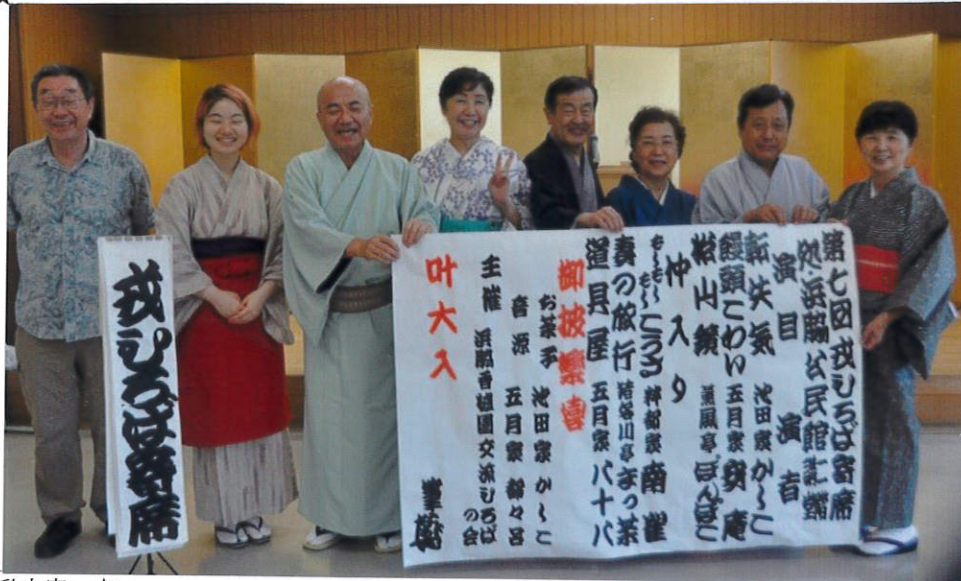 戎ひろば寄席
第七回 戎ひろば寄席
処・浜脇公民館
演目 演者
転失気 池田家かーこ
饅頭こわい 五月家寶庵
松山鏡 薫風亭ぽんぽこ
仲入り
妻の旅行 猪名川亭まっ茶
道具屋 五月家八十八
御披樂喜
お茶子 池田家 かーこ
音源 五月家 都々呂
主催 浜脇香櫨園交流ひろばの会
叶大入